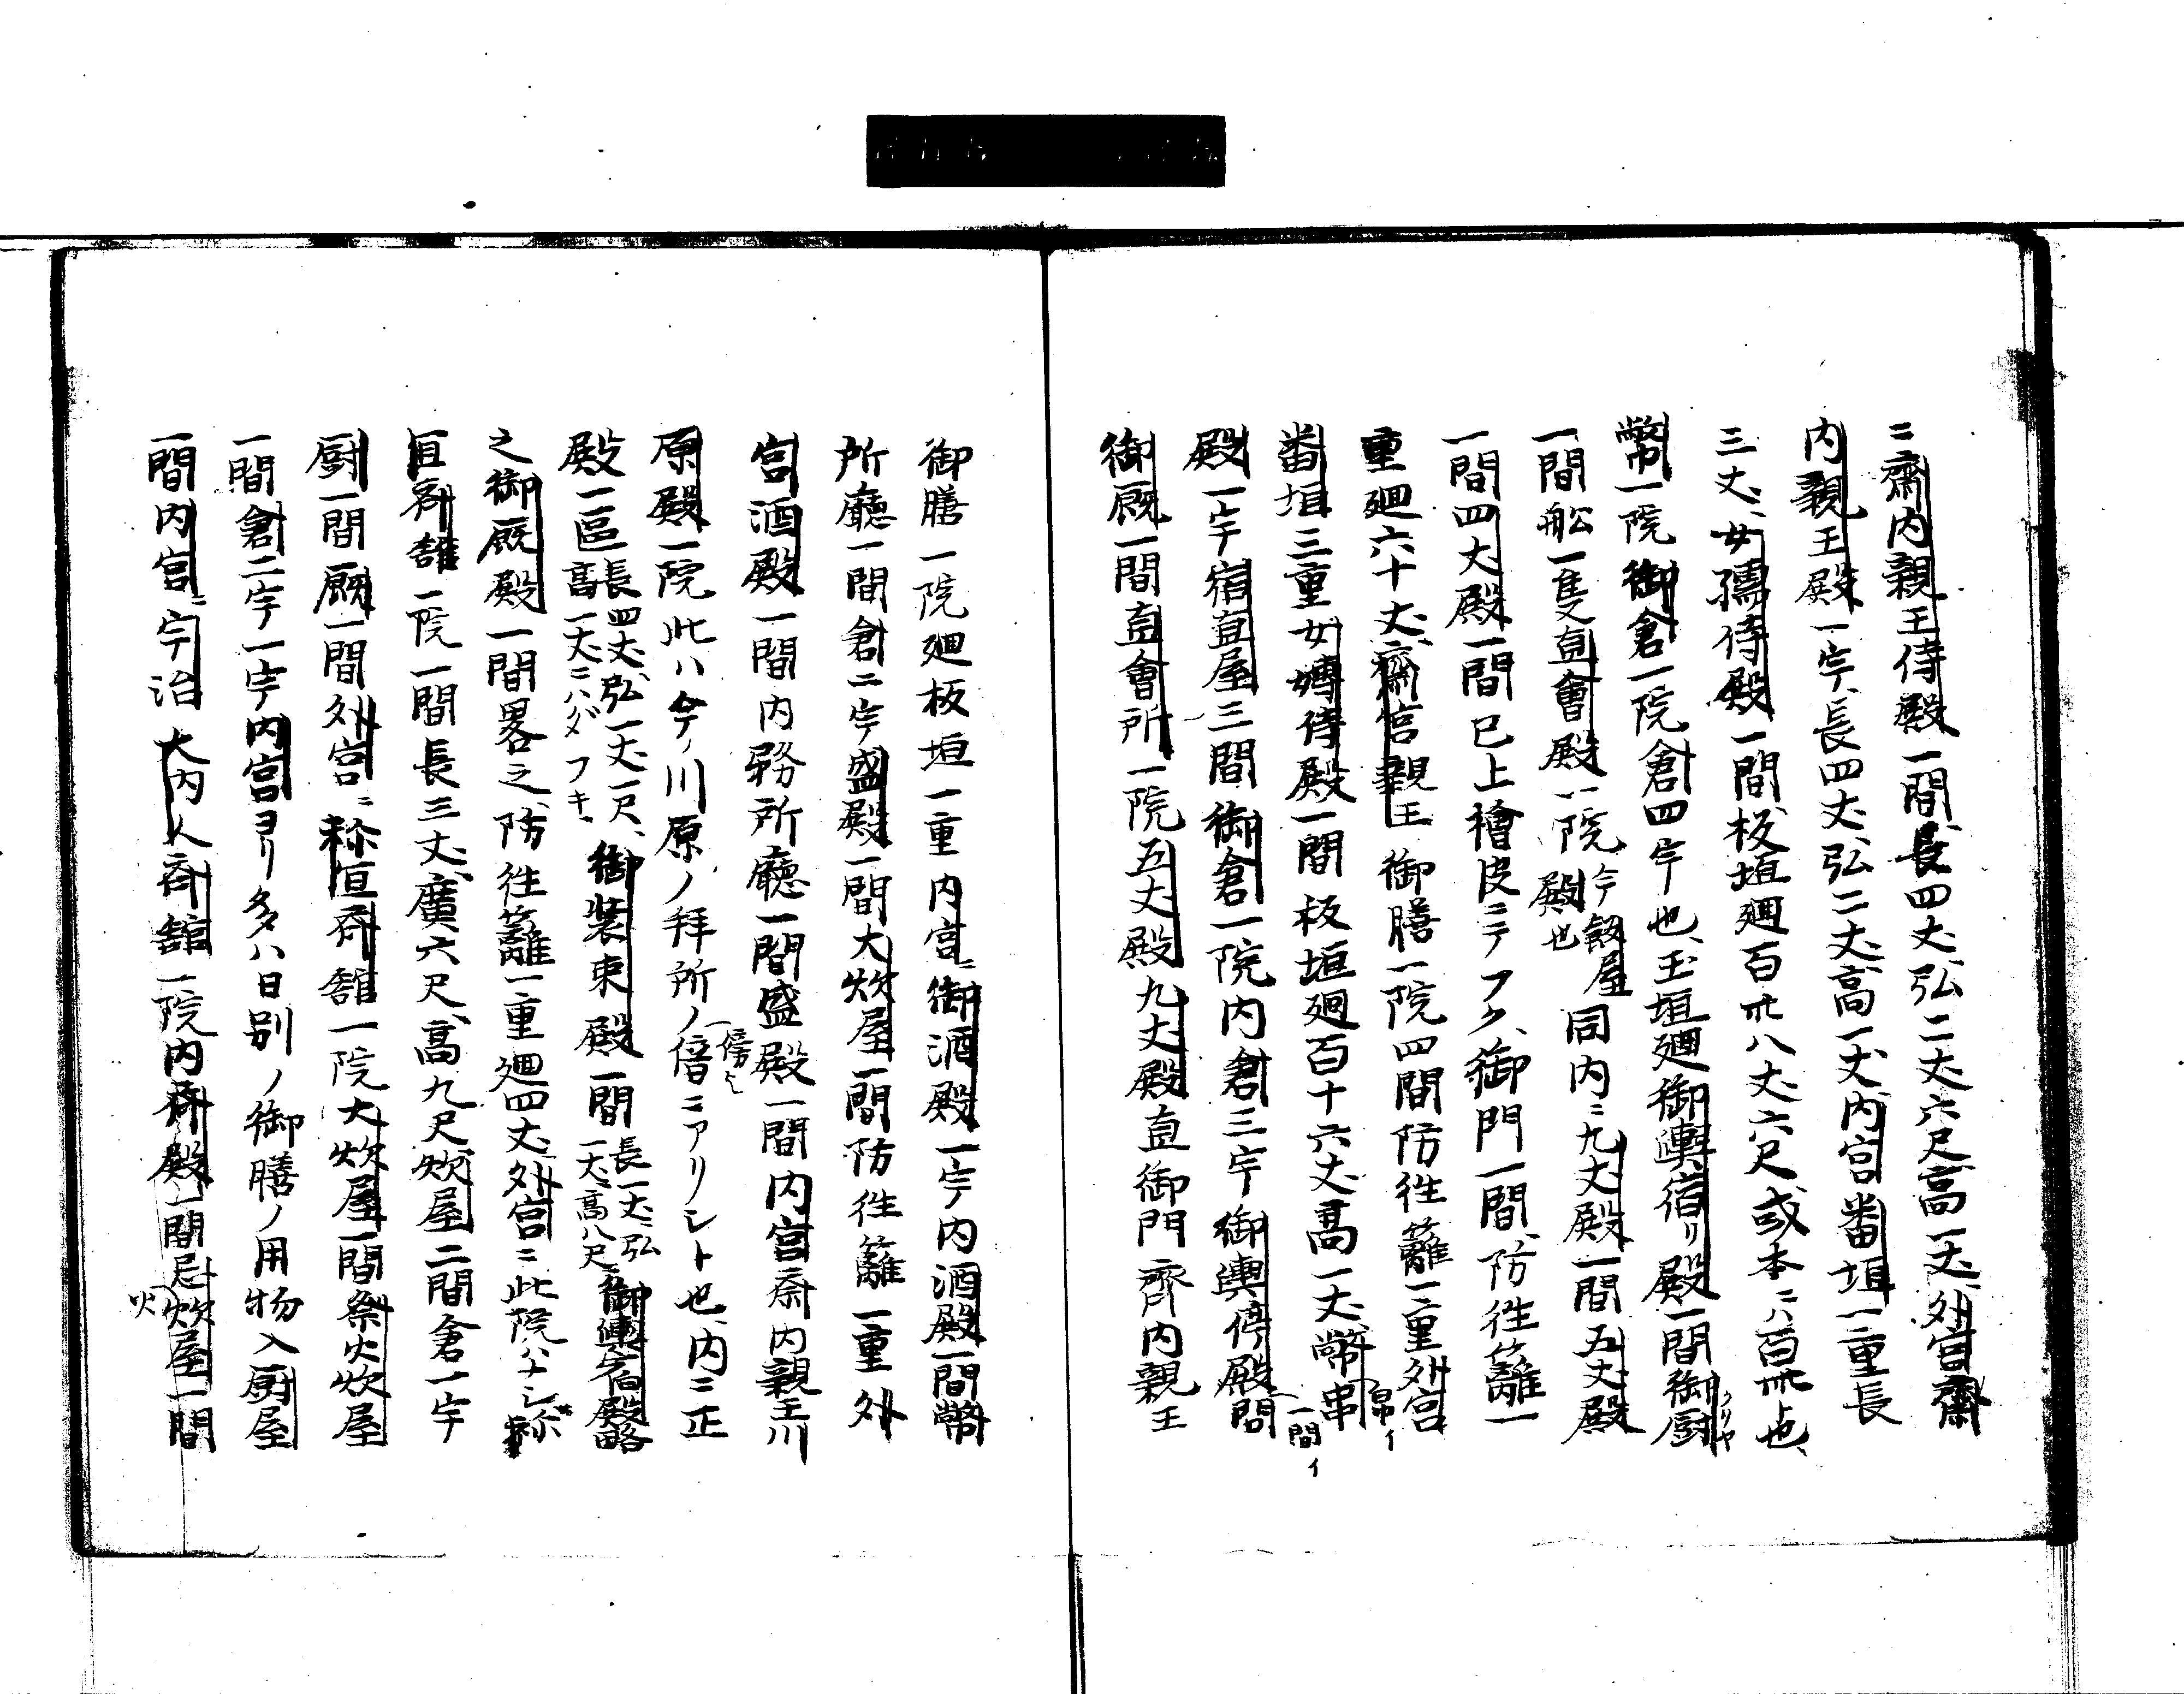 ニ齋内親王侍殿一間、長四丈、弘二丈六尺、高一丈、外宮齋
内親王殿一宇、長四丈、弘二丈、高一丈、内宮番垣一重長
三丈、女孺侍殿一間、板垣廻百卌八丈六尺、或本ニハ百卌也、
幣一院御倉一院倉四宇也、玉垣廻御輿宿リ殿一間御厨
クリヤ
一間舩一隻直會殿一院今殿也屋同内ニ九丈殿一間五丈殿
一間四丈殿一間已上檜皮ニテフク、御門一間、防徃籬一
重廻六十丈、齋宮親王御膳一院四間防徃籬一重外宮
番垣三重女嬬侍殿一間板垣廻百十六丈高一丈、幣串
帛イ
殿一宇宿直屋三間御倉一院内倉三宇御輿停殿間
一間イ
御厩一間直會所一院五丈殿九丈殿直御門齊内親王
御膳一院廻板垣一重内宮ニ御酒殿一宇内酒殿一間幣
所廳一間倉二宇盛殿一間大炊屋一間防徃籬一重外
宮酒殿一間内務所廳一間盛殿一間内宮齋内親王川
原殿一院此ハ今ノ川原ノ拝所ノ僐ニアリシト也、内ニ正
傍ヒ
殿一區長四丈、弘一丈一尺、高一丈ニハダフキ、御装束殿一間長一丈、弘一丈、高八尺、御輿宿殿略
之御厩殿一間畧之防徃籬一重廻四丈、外宮ニ此院ハナシ祢
宜斉舘一院一間長三丈、廣六尺、高九尺、炊屋二間倉一宇
厨一間厩一間外宮ニ祢宜斉舘一院大炊屋一間祭火炊屋
一間倉二宇一宇内宮ヨリ多ハ日別ノ御膳ノ用物入厨屋
一間内宮ニ宇治大内人斉舘一院内斉殿一間忌炊屋一間
火